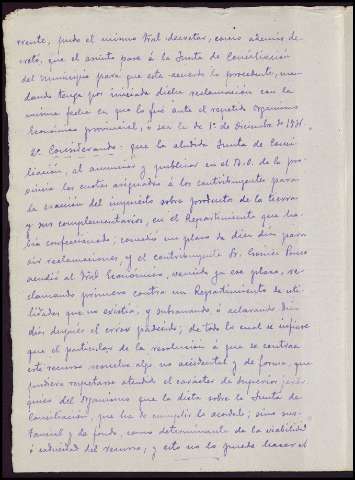 rrente, pudo el mismo Tral decretar, como además de-
cretó, que el asunto pase á la Junta de Conciliación
del Municipio para que este acuerde lo procedente, man-
dando tenga por iniciada dicha reclamación con la
misma fecha en que lo fué ante el repetido Organismo
Económico provincial, ó sea la de 1º de Diciembre de 1931.
2º Considerando: que la aludida Junta de Conci-
liación, al anunciar y publicar en el B.O. de la pro-
vincia las cuotas asignadas á los contribuyentes para
la exacción del impuesto sobre producto de la tierra
y sus complementarios, en el Repartimiento que ha-
bía confeccionado; concedió un plazo de diez días para
oir reclamaciones, y el contribuyente Sr. Ponce
acudió al Tral Económico, vencido ya ese plazo, re-
clamando primero contra un Repartimiento de uti-
lidades que no existía, y subsanando, ó aclarando diez
días después el error padecido; de todo lo cual se infiere
que el particular de la resolución á que se contrae
este recurso resuelve algo no accidental y de forma, que
pudiera reputarse atendido el caracter de Superior jerár-
quico del Organismo que la dicta sobre la Junta de
Conciliación, que ha de cumplir lo acordado; sino sus-
tancial y de fondo, como determinante de la viabilidad
ó caducidad del recurso; y esto no lo puede hacer el